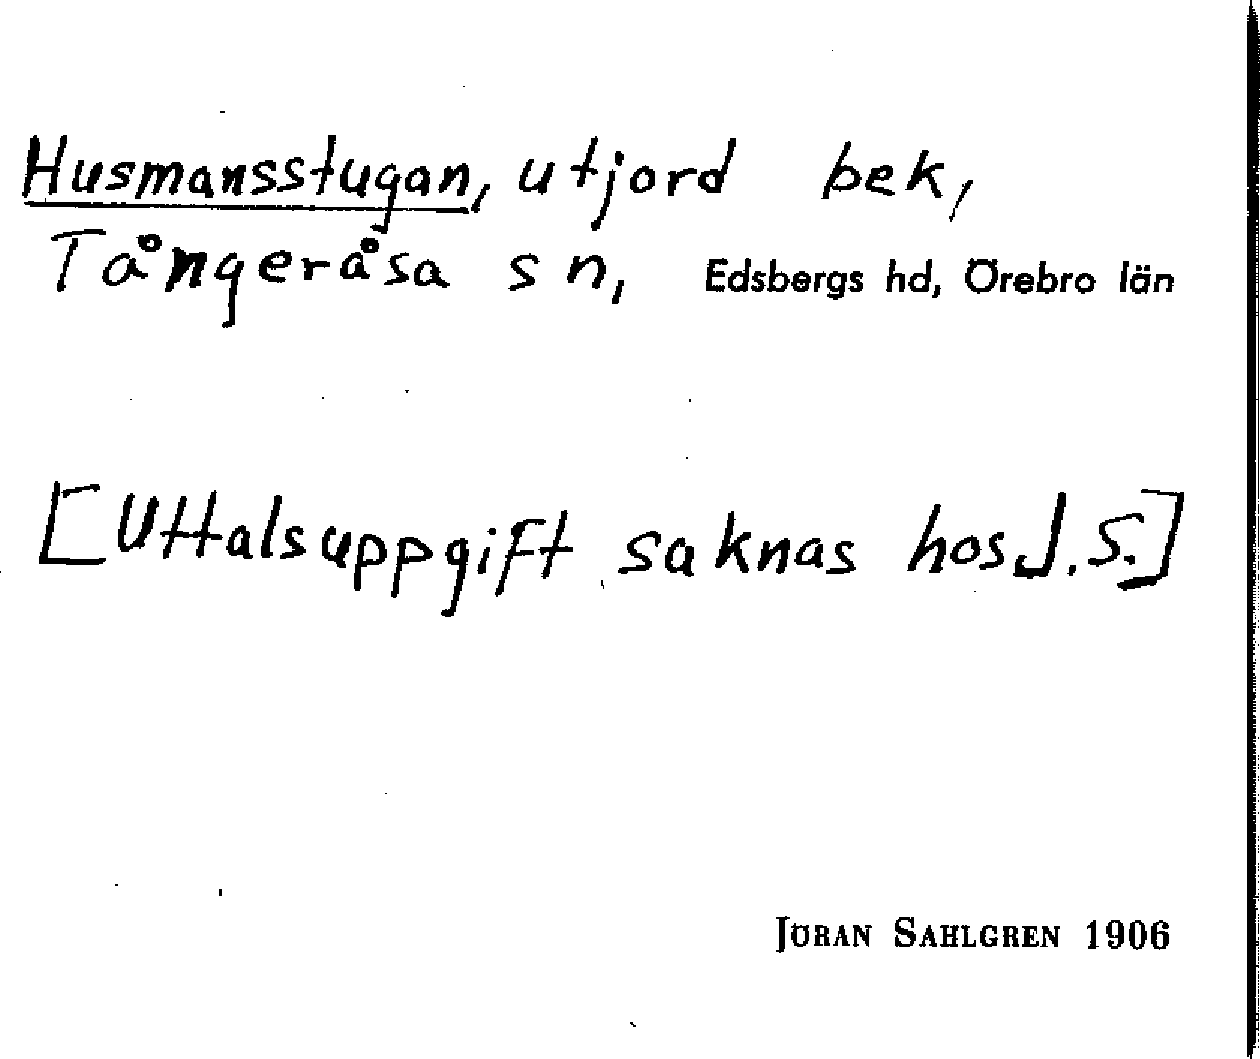 Husmansstugan, utjord bek,
Tångeråsa sn, Edsbergs hd, Örebro län
[Uttalsuppgift saknas hos J.S.]
JÖRAN SAHLGREN 1906